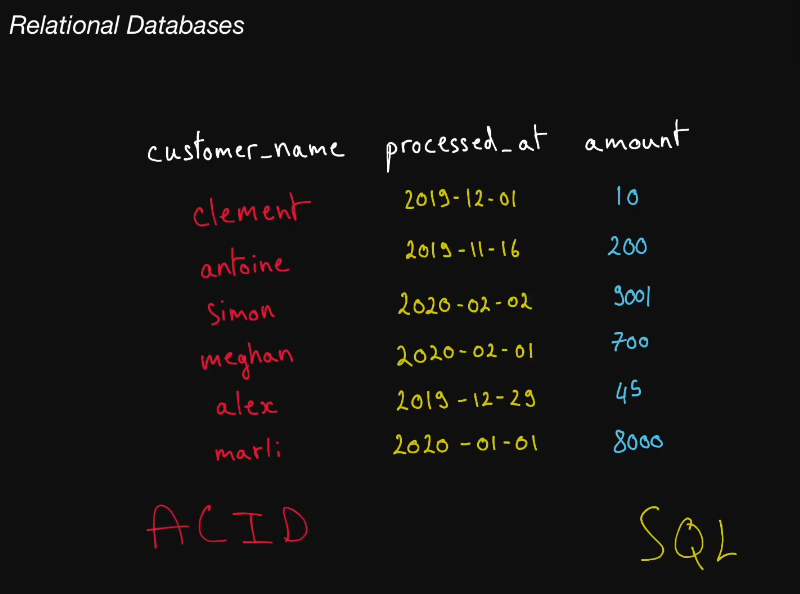 Relational Databases
customer_name processed_at amount
clement 2019-12-01 10
antoine 2019-11-16 200
simon 2020-02-02 9001
meghan 2020-02-01 700
alex 2019-12-29 45
marli 2020-01-01 8000
ACID SQL